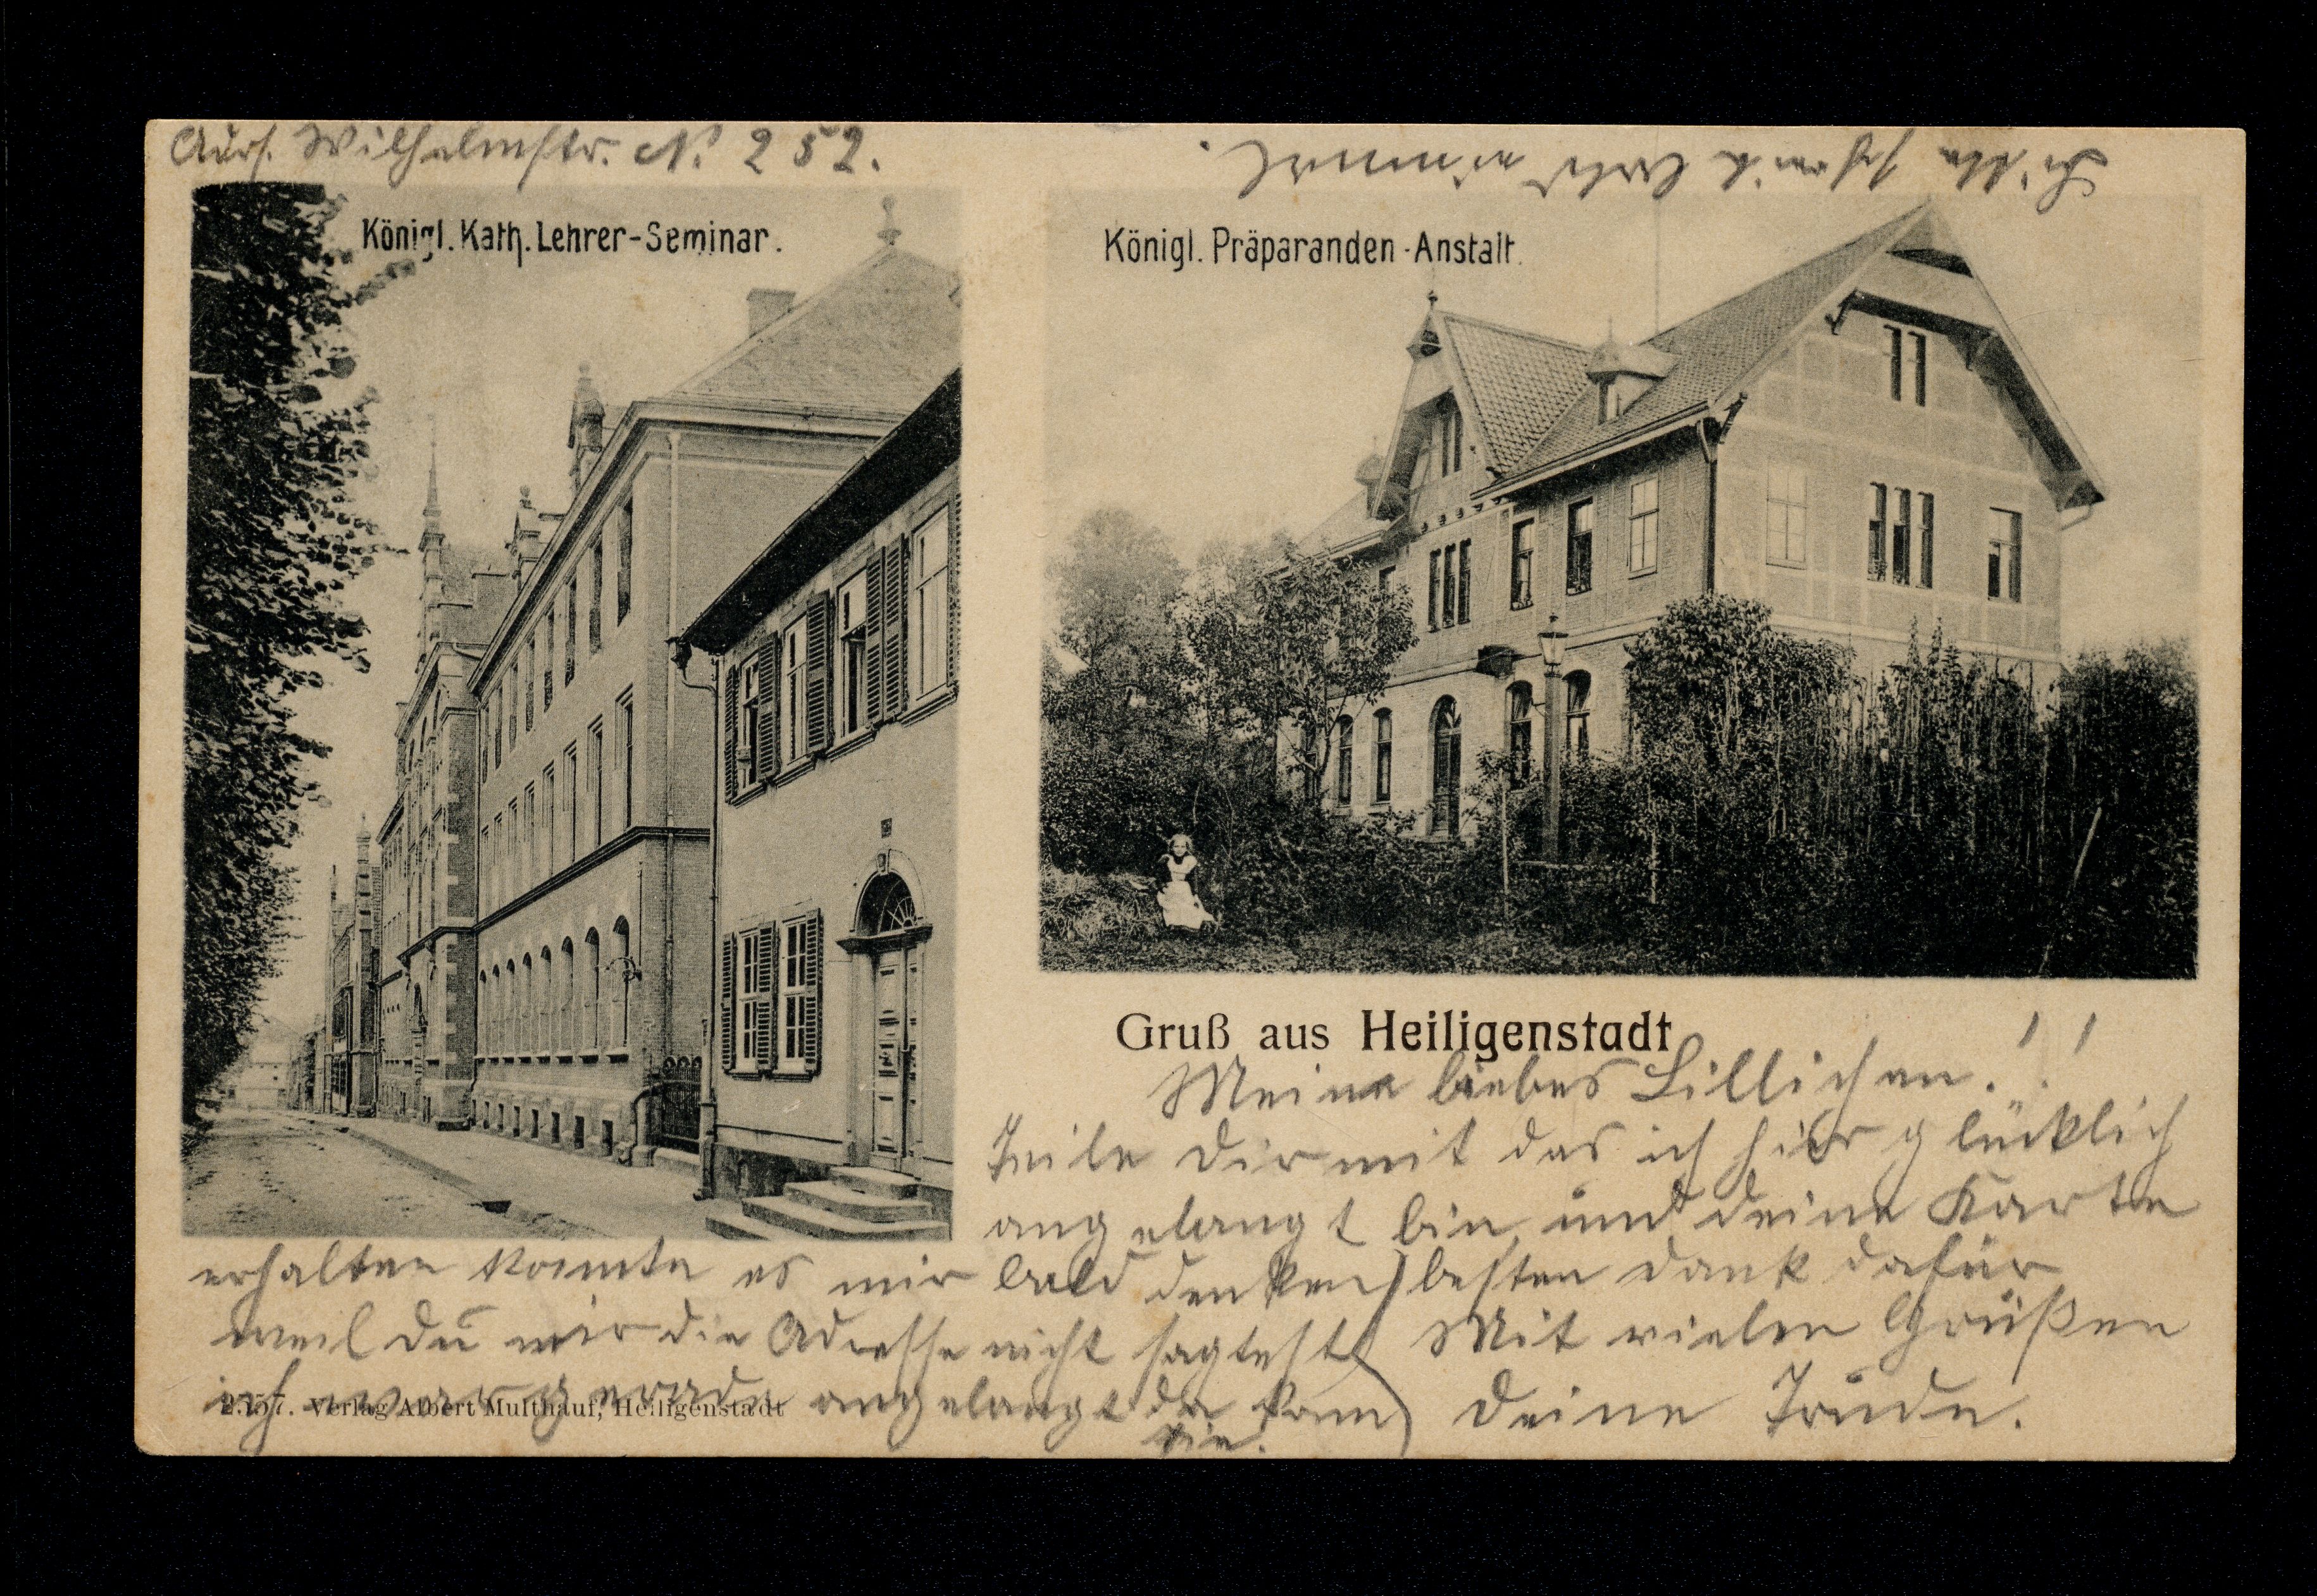 Adrs. Wilhelmstr. N. 252.
Bitte schreib bald einmal.
Königl. Kath. Lehrer-Seminar.
Königl. Präparanden-Anstalt.
Gruß aus Heiligenstadt
Meine liebes Lillichen.!!
Teile dir mit das ich hier glücklich
angelangt bin und deine Karte
erhalten konnte es mir bald denken
besten dank dafür
weil du mir die Adresse nicht sagtest
Mit vielen Grüßen
ich war gerade angelangt da kam
sie.
deine Trude.
2757. Verlag Albert Multhauf, Heiligenstadt